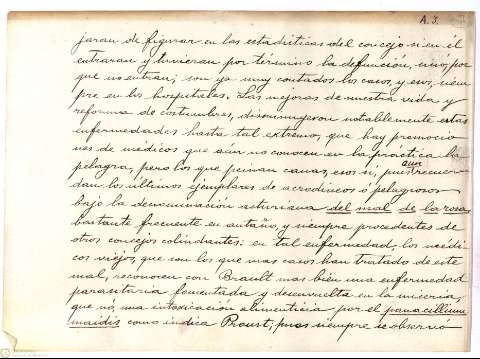 A. 3.
jaran de figurar en las estadísticas del concejo si en él
entraran y tuvieran por término la defunción, sinó, por
que no entran; son ya muy contados los casos, y esos, siem
pre en los hospitales. Las mejoras de nuestra vida y
reforma de costumbres, disminuyeron notablemente estas
enfermedades hasta tal extremo, que hay promocio
nes de médicos que aún no conocen en la práctica la
pelagra, pero los que peinan canas, esos si, pues aun recuer
dan los últimos ejemplares de acrodineos ó pelagrosos
bajo la denominación asturiana del mal de la rosa
bastante frecuente en antaño, y siempre procedentes de
otros concejos colindantes: en tal enfermedad, los médi
cos viejos, que son los que mas casos han tratado de este
mal, reconocen con Brault mas bien una enfermedad
parasitaria fomentada y desenvuelta en la miseria,
que nó, una intoxicación alimenticia por el panacillium
maidis como indica Proust, pues siempre se observó